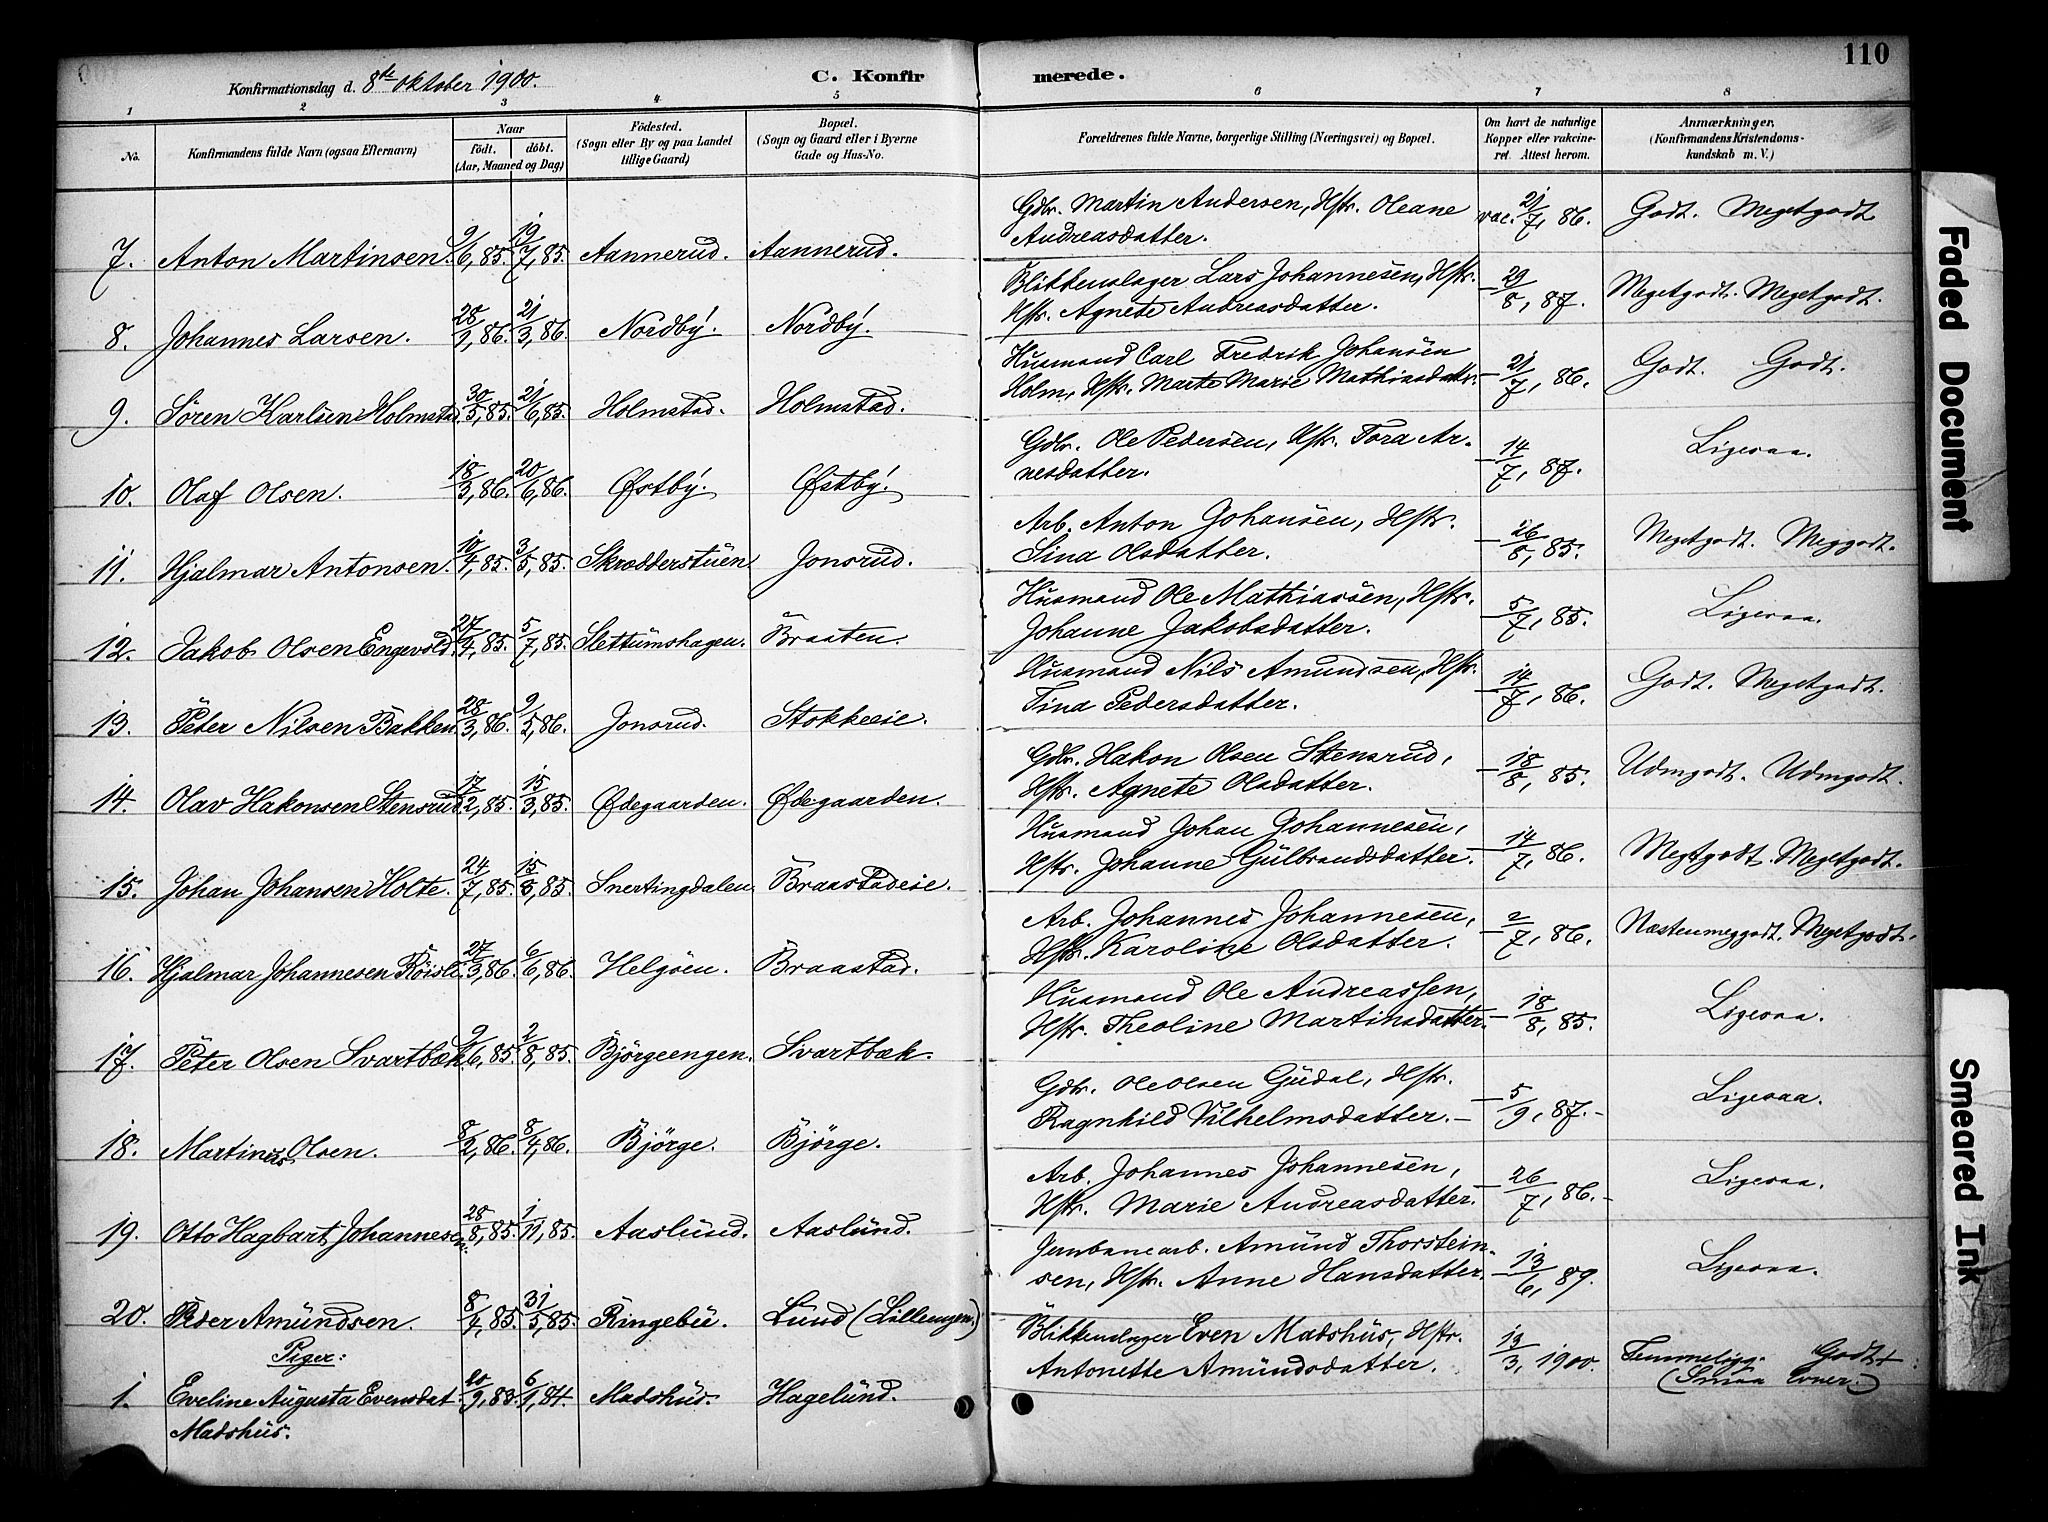 110
Konfirmationsdag d. 8de oktober 1900.
C. Konfirmerede.
1 2 3 4 5 6 7 8
No.
Konfirmandens fulde Navn (ogsaa Efternavn)
Naar
födt. döbt.
(Aar, Maaned og Dag)
Födested.
(Sogn eller By og paa Landet
tillige Gaard)
Bopæl.
(Sogn og Gaard eller i Byerne
Gade og Hus-No.
Forældrenes fulde Navne, borgerlige Stilling (Næringsvei) og Bopæl.
Om havt de naturlige
Kopper eller vakcine-
ret. Attest herom.
Anmærkninger,
(Konfirmandens Kristendoms-
kundskab m. V.)
7. Anton Martinsen. 9/6, 85. 19/7, 85. Aannerud. Aannerud. Gdbr. Martin Andersen, Hstr. Oleane
Andreasdatter. vac. 21/7, 86. Godt. Megetgodt
8. Johannes Larsen. 28/9, 86. 21/3, 86. Nordby. Nordby. Blikkenslager Lars Johannesen, Hstr.
Hstr. Agnete Andreasdatter. 29/8, 87. Megetgodt. Megetgodt.
9. Sören Karlsen Holmstad. 30/5, 85. 21/6, 85. Holmstad. Holmstad. Husmand Carl Fredrik Johansen
Holm, Hstr. Marte Marie Mathiasdattr. 21/7, 86. Godt. Godt.
10. Olaf Olsen. 18/3, 86. 20/6, 86. Østby. Østby. Gdbr. Ole Pedersen, Hstr. Tora Ar-
nesdatter. 14/7, 87. Ligesaa.
11. Hjalmar Antonsen. 10/4, 85. 3/5, 85. Skrædderstuen Jonsrud. Arb. Anton Johansen, Hstr.
Sina Olsdatter. 26/8, 85. Megetgodt. Meggodt.
12. Jakob Olsen Engevold. 27/4, 85. 5/7, 85. Slettumshagen. Braaten. Husmand Ole Mathiassen, Hstr.
Johanne Jakobsdatter. 5/7, 85. Ligesaa.
13. Peter Nilsen Bakken 28/3, 86. 9/5, 86. Jonsrud. Stokkeeie. Husmand Nils Amundsen, Hstr.
Tina Pedersdatter. 14/7, 86. Godt. Megetgodt.
14. Olav Hakonsen Stensrud. 17/2, 85. 15/3, 85. Ødegaarden. Ødegaarden. Gdbr. Hakon Olsen Stensrud,
Hstr. Agnete Olsdatter. 18/8, 85. Udmgodt. Udmgodt.
15. Johan Johansen Holte. 24/7, 85. 15/8, 85. Snertingdalen. Braastadeie. Husmand Johan Johannesen,
Hstr. Johanne Gulbrandsdatter. 14/7, 86. Megtgodt. Megetgodt.
16. Hjalmar Johannesen Röisli. 27/3, 86. 6/6, 86. Helgöen. Braastad. Arb. Johannes Johannesen,
Hstr. Karoline Olsdatter. 2/7, 86. Næstenmeggodt. Megetgodt.
17. Peter Olsen Svartbæk. 9/6, 85. 2/8, 85. Björgeengen. Svartbæk. Husmand Ole Andreassen,
Hstr. Theoline Martinsdatter. 18/8, 85. Ligesaa.
18. Martinus Olsen. 8/2, 86. 8/4, 86. Björge. Björge. Gdbr. Ole Olsen Gudal, Hstr.
Ragnhild Vilhelmsdatter. 5/9, 87. Ligesaa.
19. Otto Hagbart Johannesen. 28/8, 85. 1/11, 85. Aaslund. Aaslund. Arb. Johannes Johannesen,
Hstr. Marie Andreasdatter. 26/7, 86. Ligesaa.
20. Peder Amundsen. 8/4, 85. 31/5, 85. Ringebu. Lund (Lillengen.) Jernbanearb. Amund Thorstein-
sen, Hstr. Anne Hansdatter. 13/6, 89. Ligesaa.
Piger:
1. Eveline Augusta Evensdat. 20/9, 83. 6/1, 84. Madshus. Hagelund. Blikkenslager Even Madshus, Hstr.
Madshus. Antonette Amundsdatter. 13/3, 1900. Temmelig Godt
(Smaa Evner.)
Faded Document
Smeared Ink